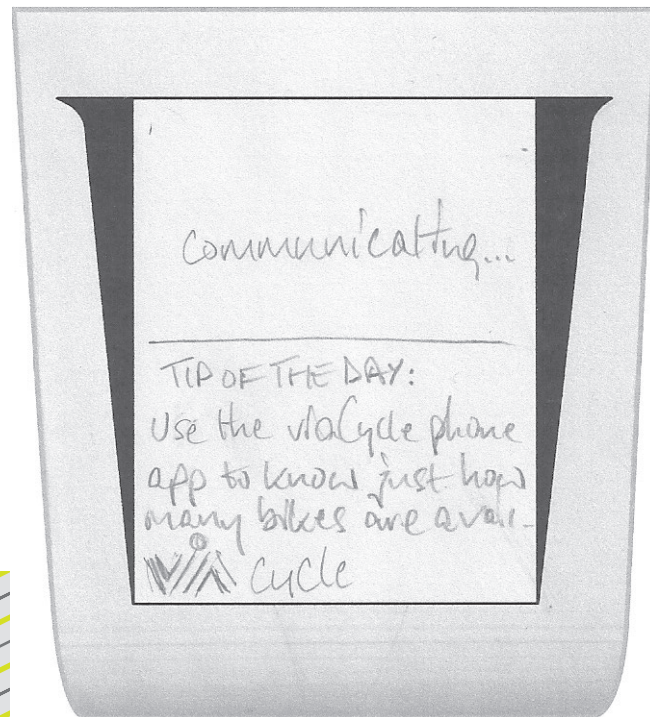 communicating...
TIP OF THE DAY:
Use the viaCycle phone
app to know just how
many bikes are avail-
VIA cycle